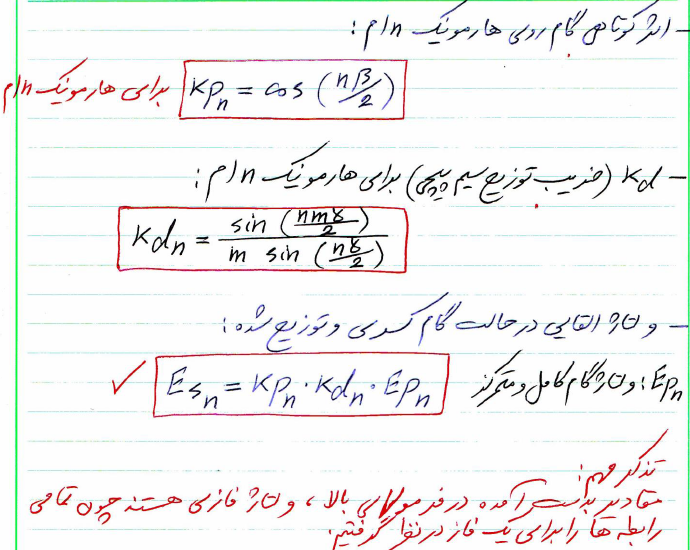 - اثر کوتاهی گام روی هارمونیک n ام :
Kp_n = cos (nβ/2) برای هارمونیک n ام
- Kd (ضریب توزیع سیم پیچی) برای هارمونیک n ام :
Kd_n = sin (nmγ/2) / m sin (nγ/2)
- ولتاژ القایی در حالت گام کسری و توزیع شده :
Es_n = Kp_n · Kd_n · Ep_n ✓ Ep_n : ولتاژ گام کامل و متمرکز
تذکر مهم :
مقادیر بدست آمده در فرمولهای بالا ، ولتاژ فازی هستند چون تمامی
رابطه ها را برای یک فاز در نظر گرفتیم.